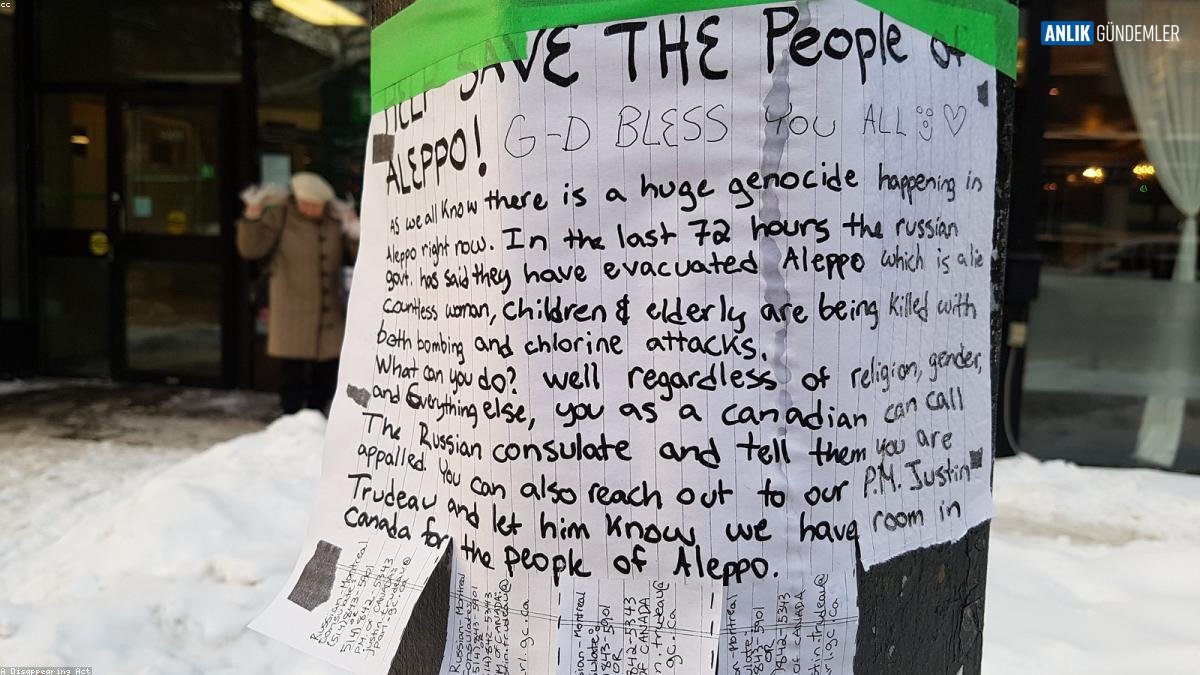 cc
ANLIK GÜNDEMLER
HELP SAVE THE People of
ALEPPO! G-D BLESS YOU ALL
As we all know there is a huge genocide happening in
Aleppo right now. In the last 72 hours the russian
govt. has said they have evacuated Aleppo which is a lie
countless woman, children & elderly are being killed with
both bombing and chlorine attacks.
What can you do? well regardless of religion, gender,
and Everything else, you as a canadian can call
The Russian consulate and tell them you are
appalled. You can also reach out to our P.M. Justin
Trudeau and let him know we have room in
Canada for the people of Aleppo.
Russian-Montreal
(514) 843-5901
OR
(514) 842-5343
Justin.trudeau@
Russian-Montreal
consulate:
(514) 843-5901
(514) 842-5343
P.M. OF CANADA
Justin.trudeau@
843-5901
OR
842-5343
OF CANADA
n.trudeau@
gc.ca
843-5901
OR
842-5343
OF CANADA
stin.trudeau@
rl.gc.ca
A Disappearing Act